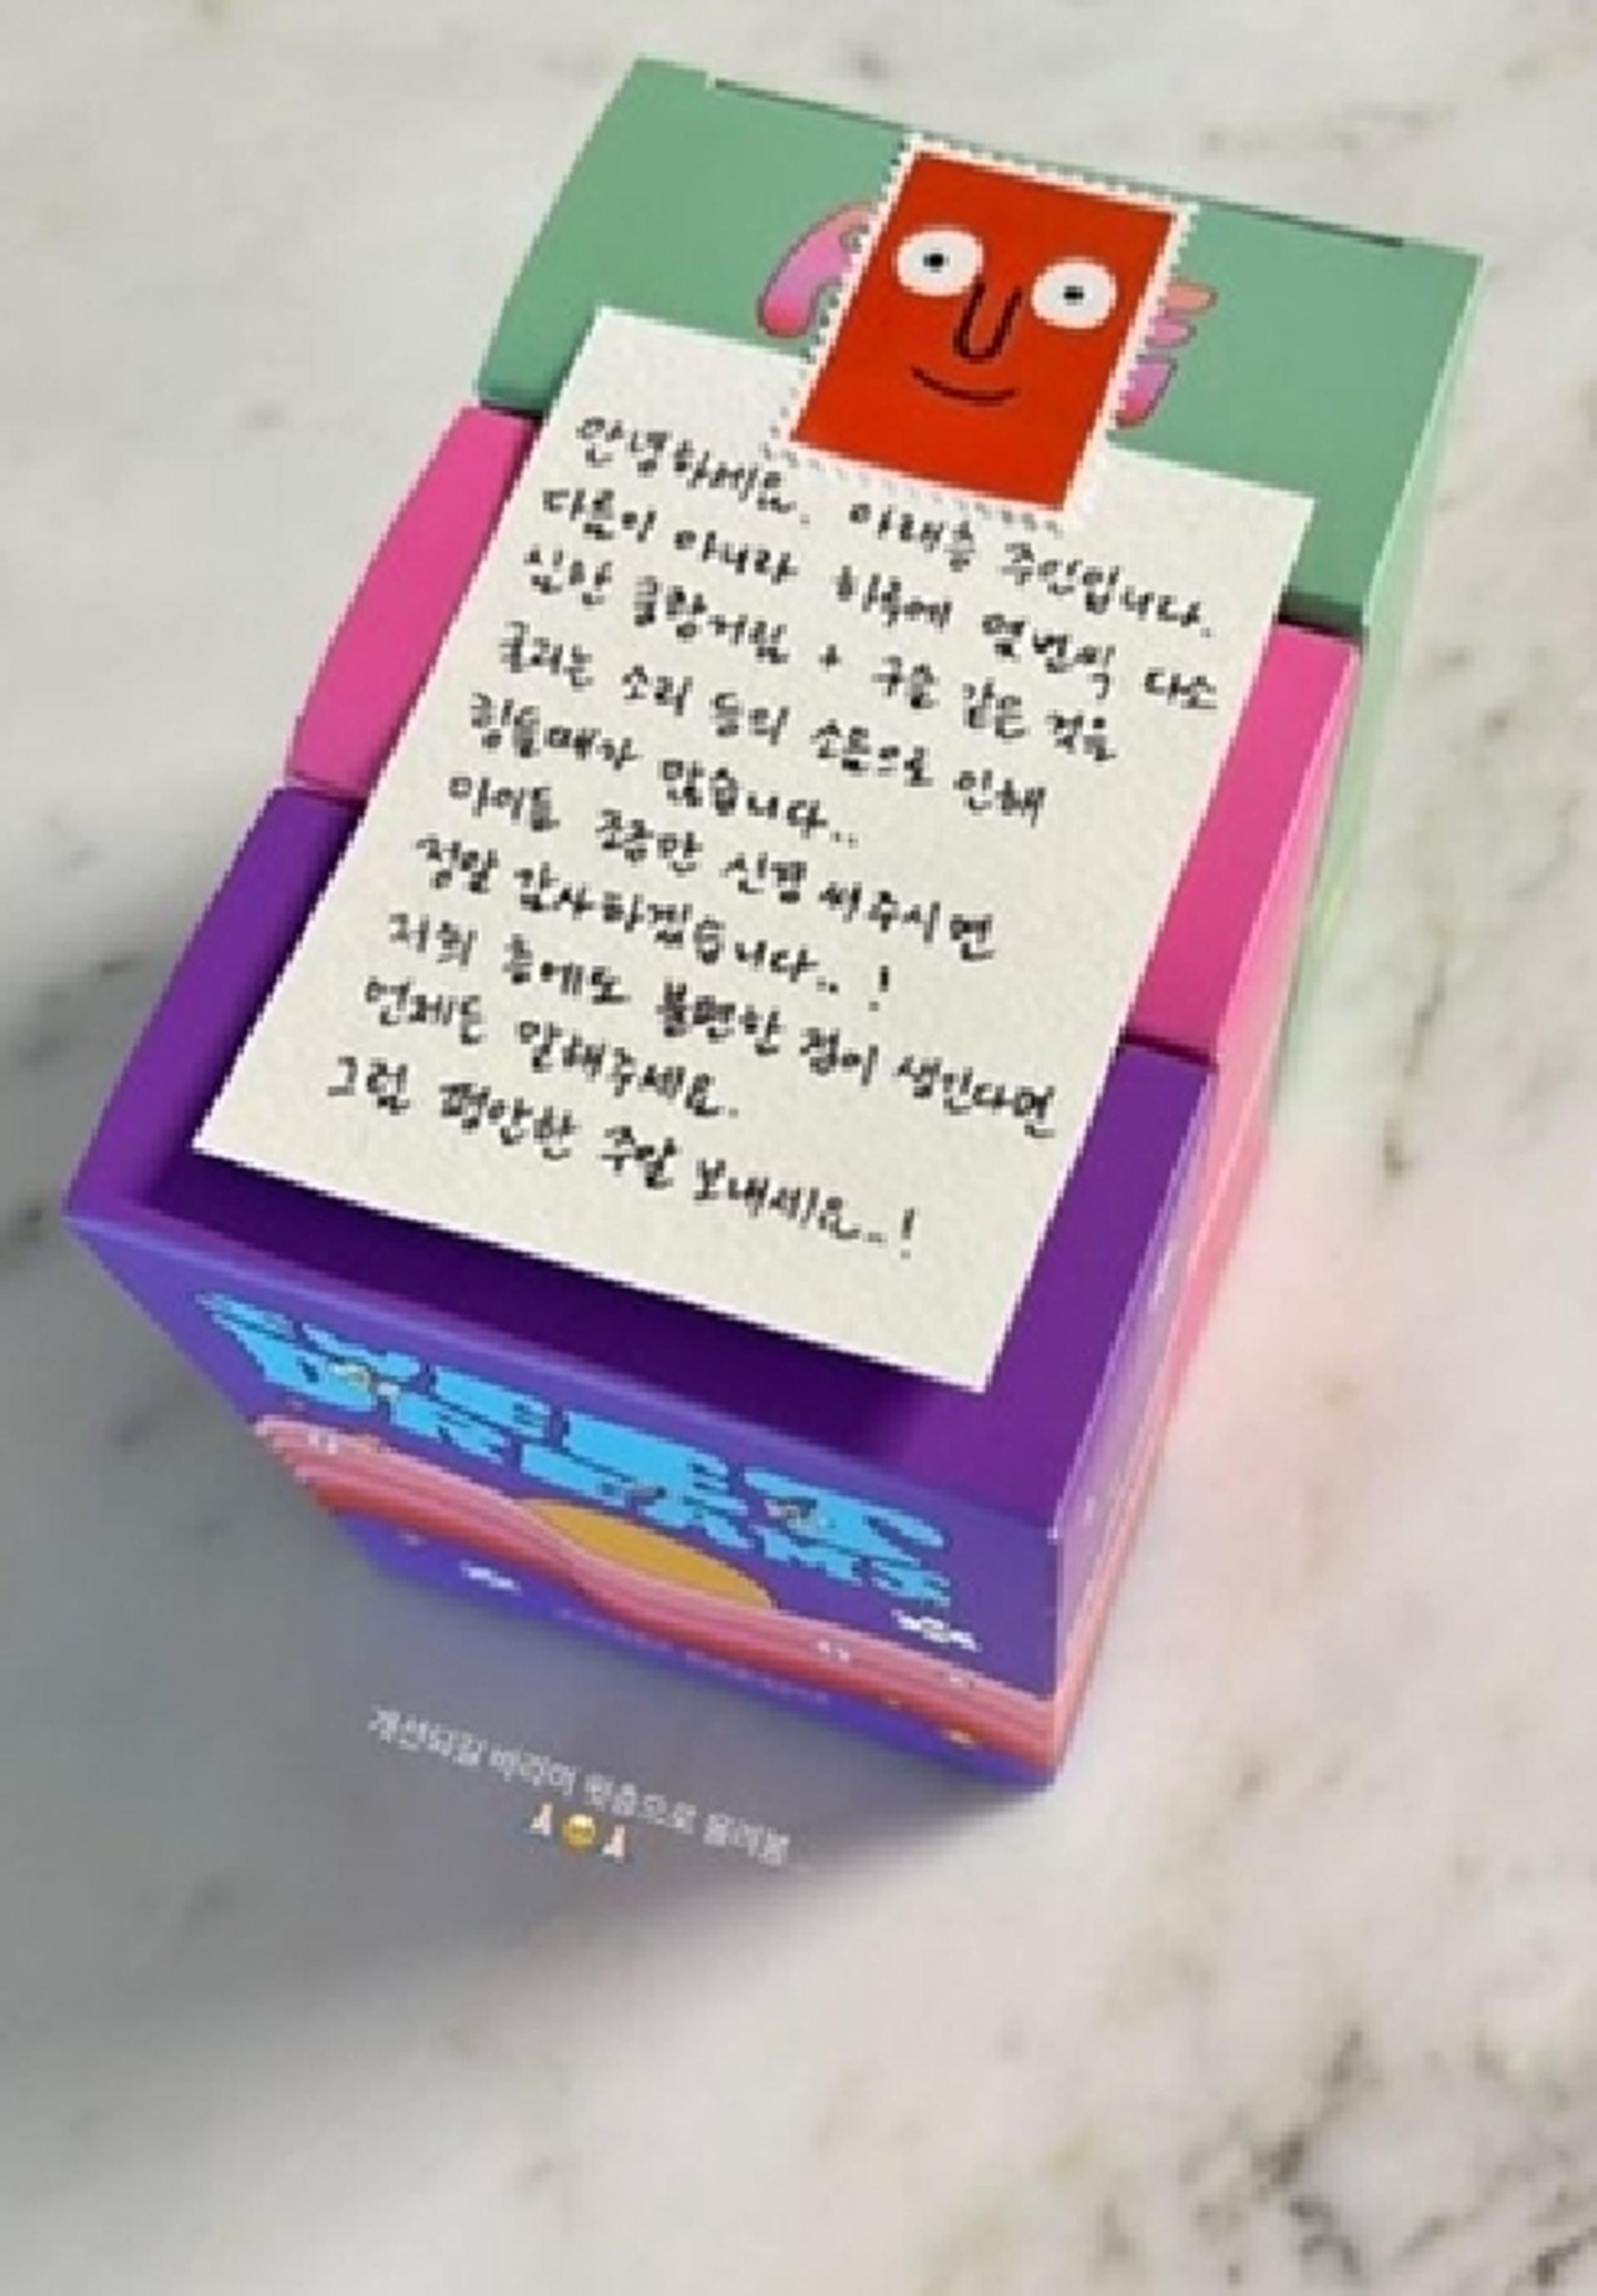 안녕하세요. 아래층 주인입니다.
다름이 아니라 하루에 열번씩 다소
심한 쿵쾅거림 + 구슬 같은 것을
굴리는 소리 등의 소음으로 인해
힘들때가 많습니다..
아이들 조금만 신경 써주시면
정말 감사하겠습니다.. !
저희 층에도 불편한 점이 생긴다면
언제든 말해주세요.
그럼 평안한 주말 보내세요..!
SWEET
DREAMS
개선되길 바라며 윗층으로 올려봄